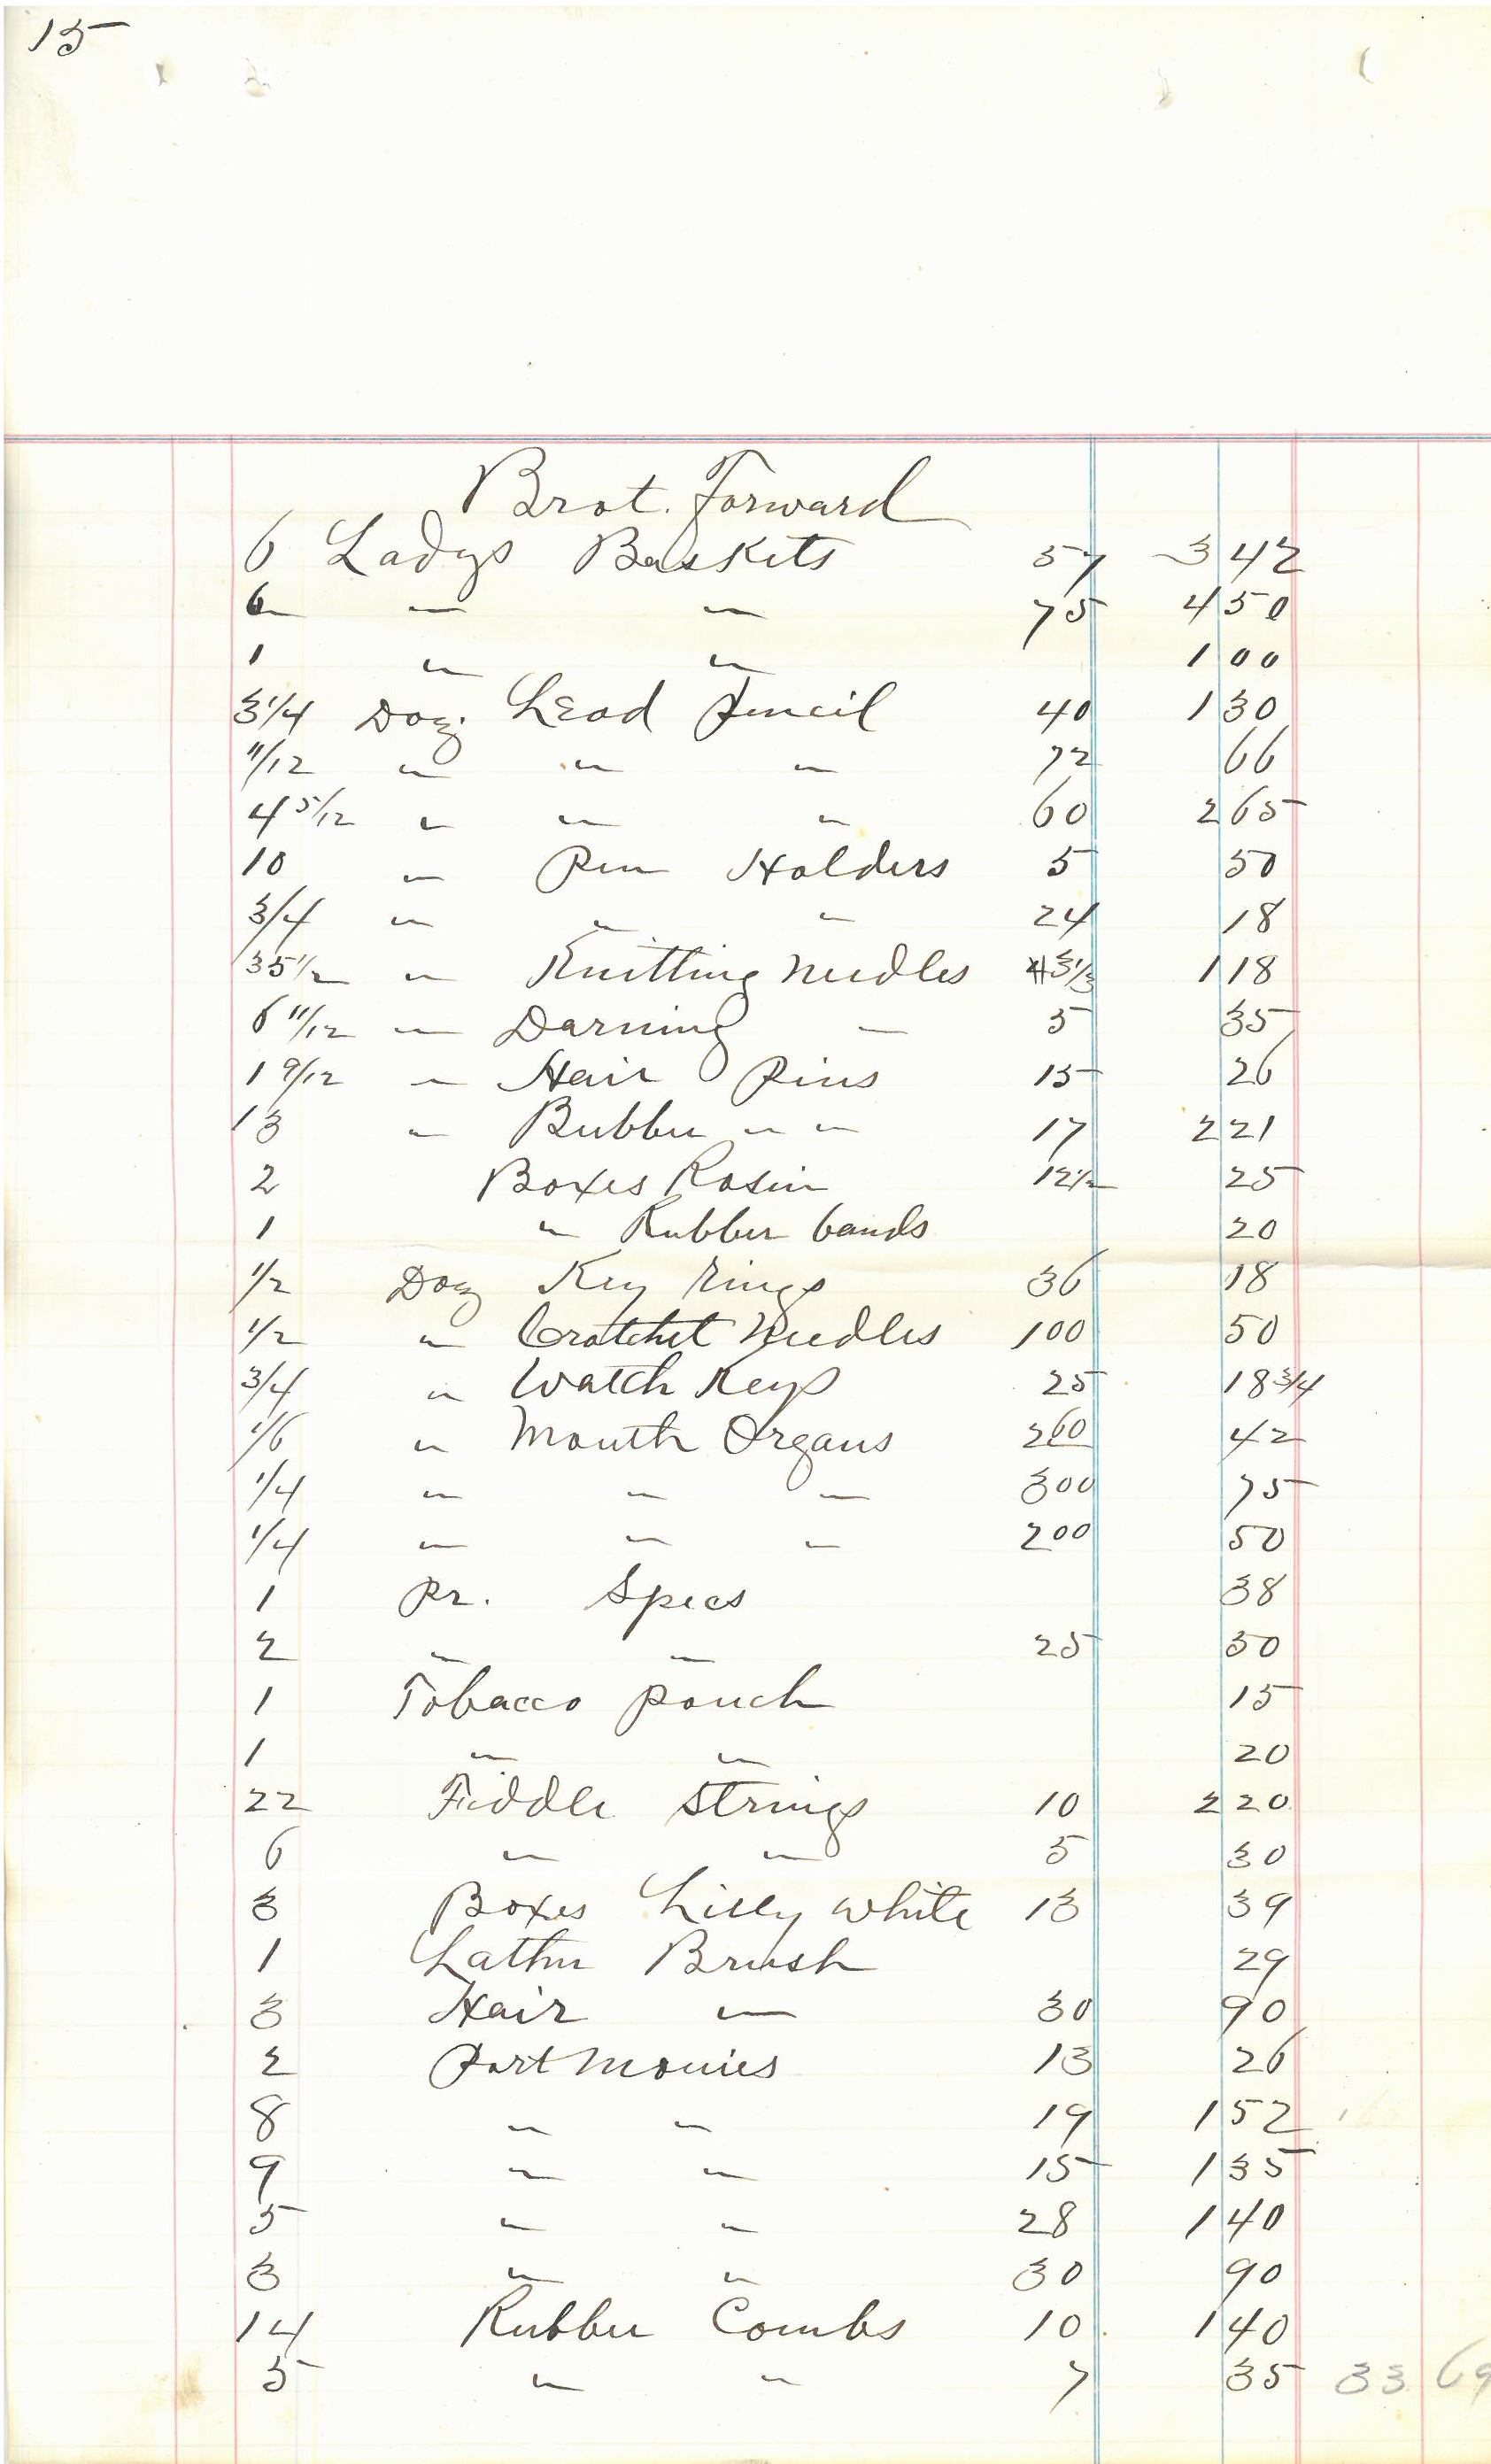 15
Brot. Forward
6 Ladys Baskets 57 3 42
6 " " 75 4 50
1 " " 1 00
3 1/4 Doz. Lead Pencil 40 1 30
11/12 " " " 72 66
4 5/12 " " " 60 2 65
10 " Pen Holders 5 50
3/4 " " " 24 18
35 1/2 " Knitting Needles 3 1/3 1 18
6 11/12 " Darning " 5 35
1 9/12 " Hair Pins 15 26
13 " Rubber " " 17 2 21
2 Boxes Rosin 12 1/2 25
1 " Rubber bands 20
1/2 Doz Key rings 36 18
1/2 " Crotchet Needles 100 50
3/4 " Watch Keys 25 18 3/4
1/6 " Mouth Organs 260 42
1/4 " " " 300 75
1/4 " " " 200 50
1 Pr. Specs 38
2 " " 25 50
1 Tobacco Pouch 15
1 " " 20
22 Fiddle Strings 10 2 20
6 " " 5 30
3 Boxes Lilly white 13 39
1 Lather Brush 29
3 Hair " 30 90
2 Port Monies 13 26
8 " " 19 1 52
9 " " 15 1 35
5 " " 28 1 40
3 " " 30 90
14 Rubber Combs 10 1 40
5 " " 7 35 33 69